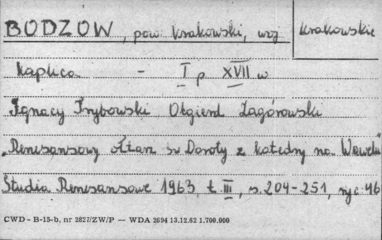 BODZÓW, pow. krakowski, woj. krakowskie
Kaplica - I p. XVII w
Ignacy Trybowski Olgierd Zagórowski
"Renesansowy ołtarz św Doroty z katedry na Wawelu"
Studia Renesansowe 1963, t. III, s. 204-251, ryc 46
CWD - B-15-b, nr 2827/ZW/P — WDA 2694 13.12.62 1.700.000